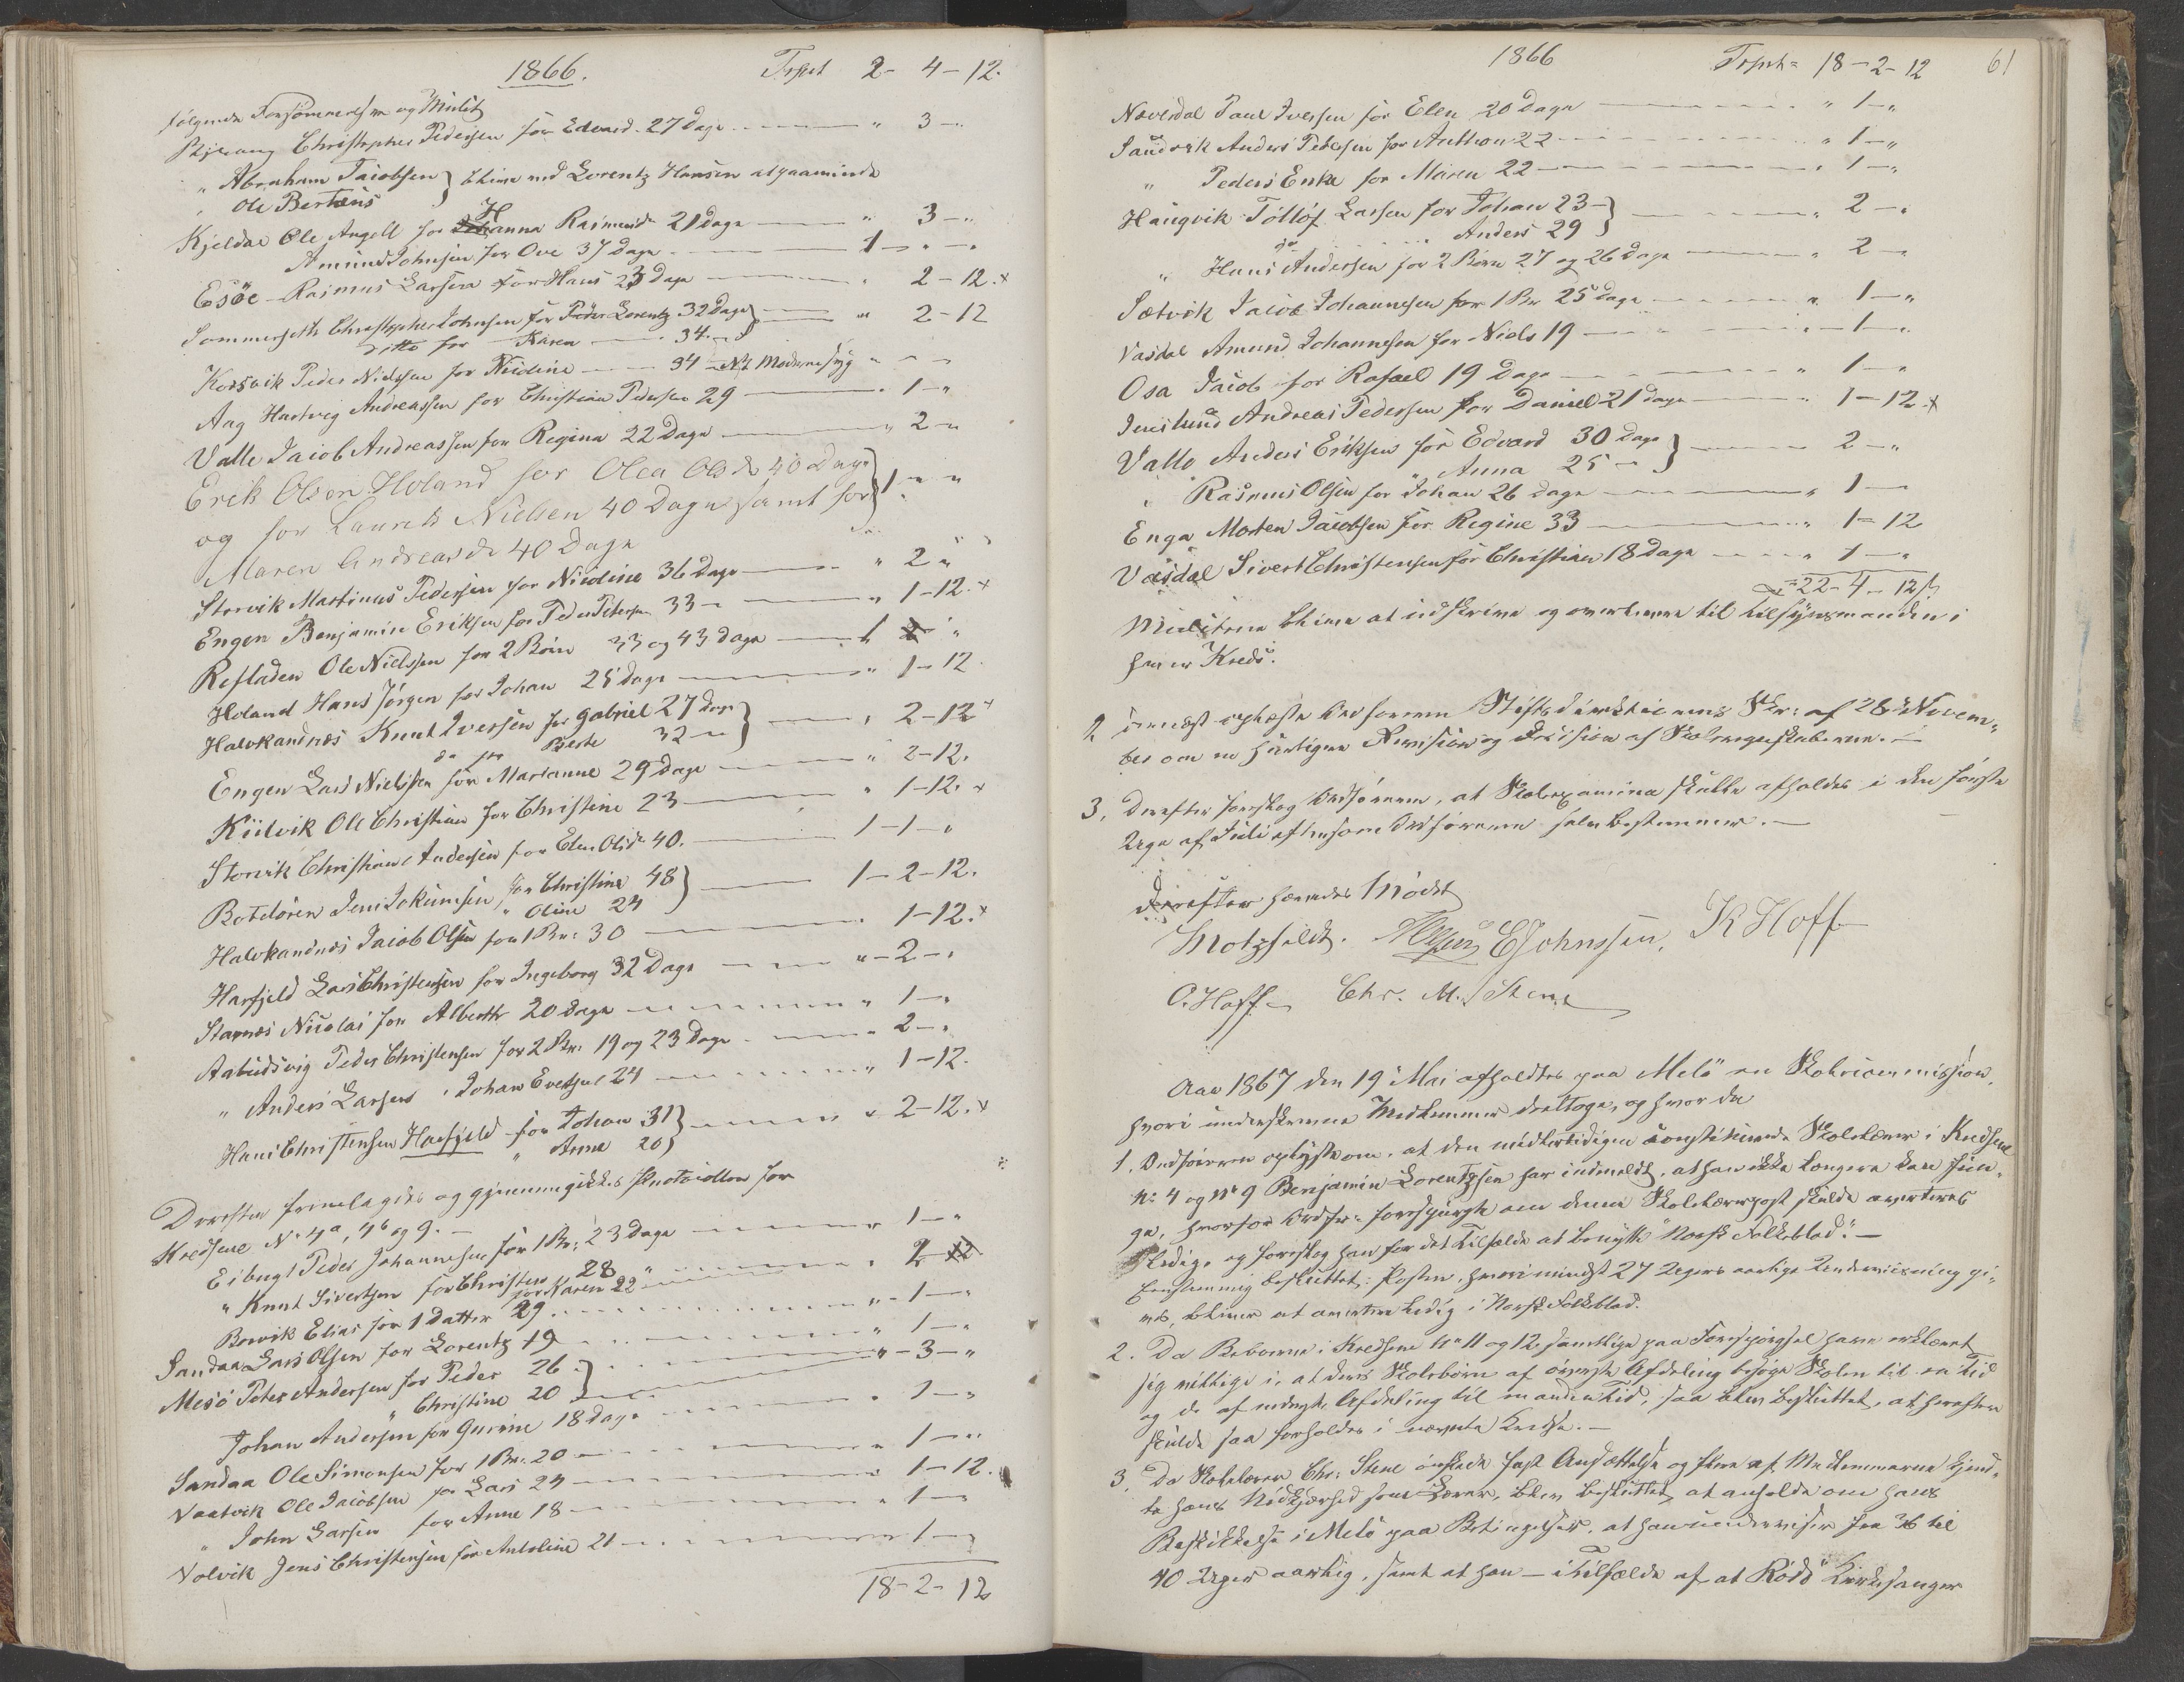 1866. Trspt 2- 4-12.
følgende Forsømmelser og Mulct
Bjerang Christopher Pedersen for Edvard 27 Dage " 3-"
" Abraham Jacobsen } bliver ved Lorentz Hansen afgaaende
" Ole Bertæus
Kjeldal Ole Angell for Hanna Rasmusd 21 Dage " 3-"
Amund Johnsen for Ove 37 dage 1-"-"
Esöe Rasmus Larsen for Hans 23 Dage " 2-12.x
Sommerseth Christopher Johnsen for Peder Lorentz 32 Dage } " 2-12
ditto for Karen 34
Korsvik Peder Nielssen for Nicoline 34 - Nb Moderen syg " - "
Aag Hartvig Andreassen for Christian Pedersen 29 " 1-"
Valle Jacob Andreassen for Regina 22 Dage " 2-"
Erik Olsen Holand for Olea Olsdr 40 Dage } 1-"-"
og for Laurits Nielsen 40 Dage samt for
Maren Andreasdr 40 Dage
Storvik Martinus Pedersen for Nicoline 36 Dage " 2 "
Engen Benjamin Eriksen for Peder Petersen 33 " 1-12.x
Resladen Ole Nielssen for 2 Börn 33 og 43 dage 1 "
Holand Hans Jörgen for Johan 25 dage " 1-12.
Halvkandnæs Knut Iversen for Gabriel 27 dage } " 2-12
do for Berte 32
Engen Lars Nielssen for Marianne 29 Dage " 2-12.
Kiilvik Ole Christian for Christine 23 " 1-12.x
Storvik Christian Andersen for Elen Olsdr 40. 1-1-"
Botolören Jens Jokumsen for Christine 48 } 1-2-12.
" Oline 24
Halvkandnæs Jacob Olsen for 1 Br: 30 " 1-12.x
Harfjeld Lars Christensen for Ingeborg 32 Dage "-2-"
Stavnæs Nicolai for Alberth 20 dage " 1-"
Aabudsvig Peder Christensen for 2 Br: 19 og 23 Dage " 2-"
" Anders Larsen " Johan Evetsen 24 " 1-12.
Hans Christensen Harfjeld for Johan 31 } " 2-12.x
" Anna 20
Derefter fremlagdes og gjennemgikkes Skoleidlen for
Kredsene No 4a, 4b og 9.-
Eibugt Peder Johannesen for 1 Br: 23 Dage 1-"
" Knut Sivertsen for Christen 28 " 2
for Karen 22
Borvik Elias for 1 datter 29 "-1-"
Sandaa Lars Olsen for Lorentz 19 " 1-"
Mesö Peter Andersen for Peder 26 } "-3-"
" Christine 20
Johan Andersen for Gurine 18 dage " 1-"
Sandaa Ole Simonsen for 1 Br: 20 " 1-"
Vaatvik Ole Jacobsen for Lars 24 " 1-12.
" John Larsen for Anne 18 " 1-"
Valvik Jens Christensen for Antoline 21 1-"
18-2-12
1866 Trsprt= 18-2-12 61
Næverdal Paul Iversen for Elen 20 Dage " 1-"
Sandvik Anders Pedersen for Anthon 22 " 1-"
" Peders Enke for Maren 22 " 1-"
Haugvik Tollöf Larsen for Johan 23 } " 2-"
do Anders 29
" Hans Andersen for 2 Börn 27 og 26 dage " 2-"
Sætvik Jacob Johannesen for 1 Br 25 Dage " 1-"
Vasdal Amund Johannesen for Niels 19 "-1-"
Osa Jacob for Rafael 19 Dage " 1-"
Jenslund Andreas Pedersen for Daniel 21 dage " 1-12.x
Valle Anders Eriksen for Edvard 30 Dage } 2-"
" Anna 25
" Rasmus Olsen for Johan 26 dage " 1-"
Enga Morten Jacobsen for Regine 33 " 1-12
Vasdal Sivert Christensen for Christian 18 Dage " 1-"
=22-4-12 ß
Mulcterne bliver at indskrive og overlevere til tilsynsmanden i
hver Kreds.
2 dernæst oplæste Ordføreren Stiftsdirektionens Skr: af 28 Novem-
ber om en hurtigere Revision og Decision af Skoleregnskaberne.-
3. Derefter foreslog Ordføreren, at Skoleexamina skulle afholdes i den første
Uge af Juli eftersom Ordføreren selv bestemmer.-
derefter hævedes Mødet
Motzfeldt. E Johnssen, K Hoff
O. Hoff Chr. M. Stene
Aar 1867 den 19 Mai afholdtes paa Melö en Skolecommission,
hvori underskrevne Medlemmer deeltoge, og hvor da
1. Ordføreren oplyste om, at den midlertidigen constituerede Skolelærer i Kredsene
No 4 og No 9 Benjamin Lorentzsen har indmeldt, at han ikke længere kan fun-
gere, hvorfor Ordfør: forespurgte om denne Skolelærerpost skulde averteres
ledig, og foreslog han for det Tilfælde at benytte "Norsk Folkeblad".-
Eenstemmig besluttet: Posten, hvori mindst 27 Ugers aarlige Underviisning gi-
ves, bliver at avertere ledig i Norsk Folkeblad.
2. Da Beboerne i Kredsene No 11 og 12 samtlige paa Forespørgsel have erklæret
sig villige i, at deres Skolebørn af øverste Afdeling besøge Skolen til en Tid
og de af nederste Afdeling til en anden Tid, saa blev besluttet, at herefter
skulde saa forholdes i nævnte Kredse.-
3. Da Skolelærer Chr: Stene ønskede fast Ansættelse og flere af Medlemmerne kjend-
te hans Nidkjærhed som Lærer, blev besluttet, at anholde om hans
Beskikkelse i Melö paa Betingelser, at han underviser fra 36 til
40 Uger aarlig, samt at han - i Tilfælde af at Rödö Kirkesanger